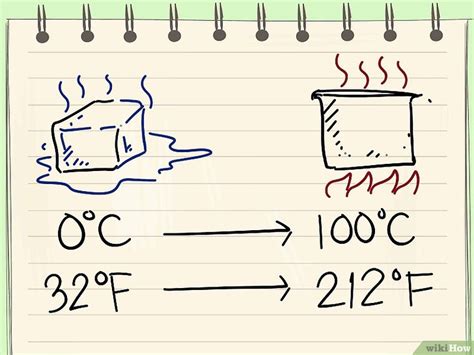 0°C → 100°C
32°F → 212°F
wikiHow